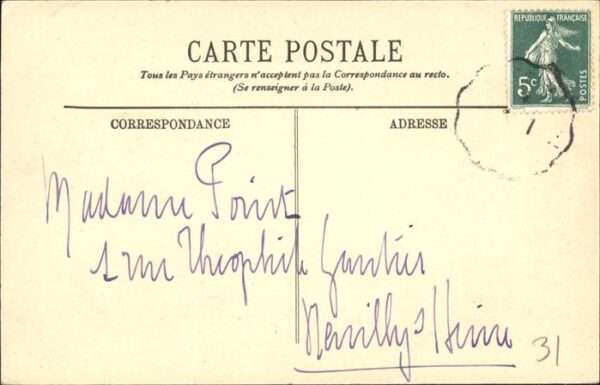 CARTE POSTALE
Tous les Pays étrangers n'acceptent pas la Correspondance au recto.
(Se renseigner à la Poste).
REPUBLIQUE FRANÇAISE
5c
POSTES
CORRESPONDANCE
ADRESSE
1
Madame Point
1 rue Théophile Gautier
Neuilly s/ Seine
31